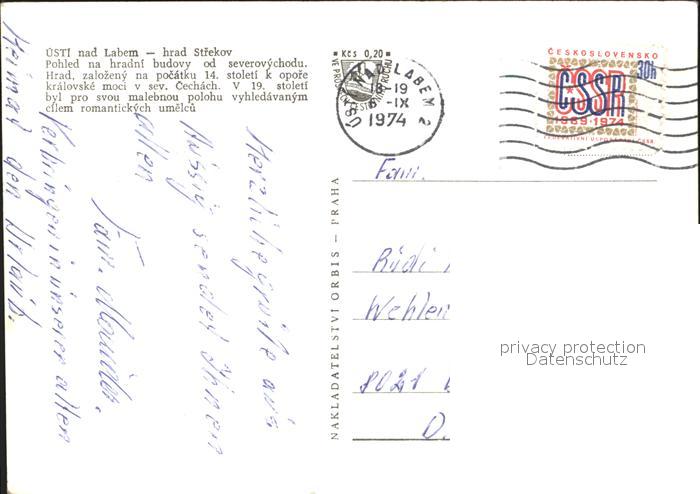 ÚSTÍ nad Labem — hrad Střekov
Pohled na hradní budovy od severovýchodu.
Hrad, založený na počátku 14. století k opoře
královské moci v sev. Čechách. V 19. století
byl pro svou malebnou polohu vyhledávaným
cílem romantických umělců
Kčs 0,20
ÚSTÍ NAD LABEM 2
18-19
6.-IX
1974
ČESKOSLOVENSKO
30h
ČSSR
1969-1974
NAKLADATELSTVÍ ORBIS — PRAHA
Herzliche Grüße aus
Aussig sendet Ihnen
allen
Fam.
Verbringen in unserer alten
Heimat den Urlaub.
Fam.
Rudi
Wehlen
8021
D.
privacy protection
Datenschutz